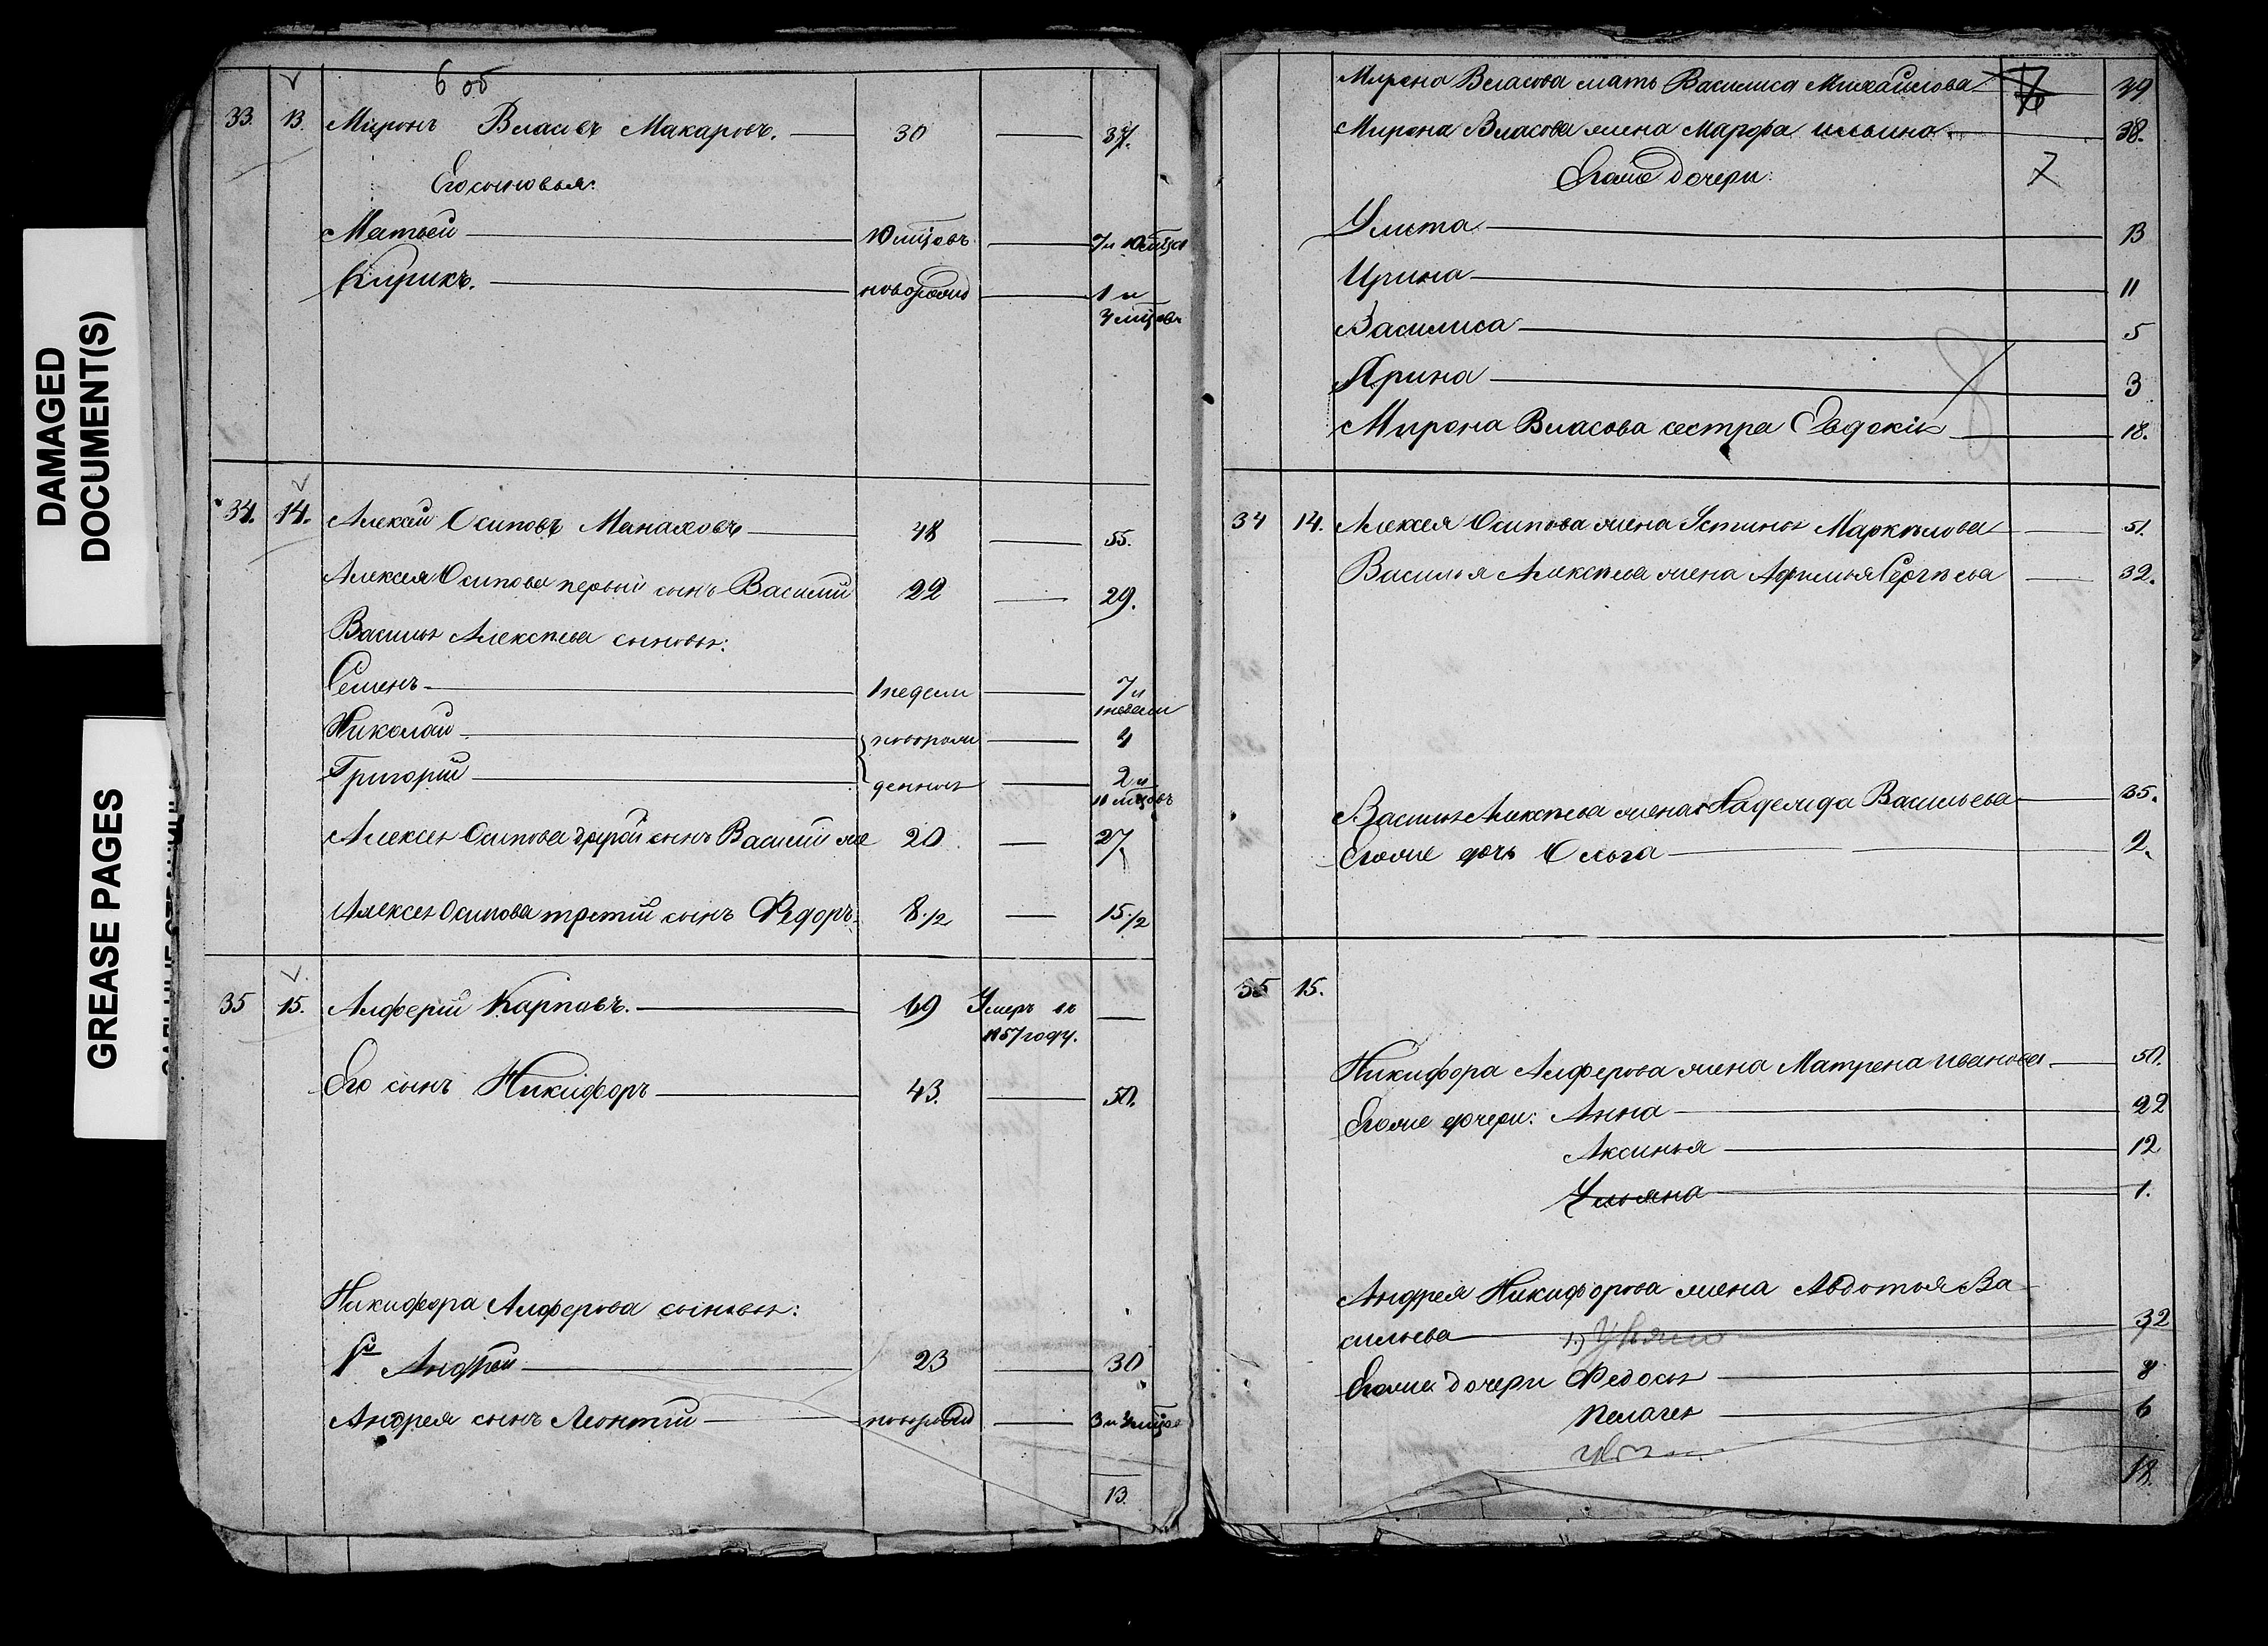 DAMAGED
DOCUMENT(S)
GREASE PAGES
6 об
33. 13. Миронъ Власовъ Макаровъ. 30 37.
Его сыновья:
Матвей 10 мцовъ 7 и 10 мцов
Кирикъ. новорожд 1 и
мцовъ
34. 14. Алексей Осиповъ Манаховъ 48 55.
Алексея Осипова первый сынъ Василий 22 29.
Василья Алексеева сыновья:
Семенъ 1 недели 7 и
1 недели
Николай новорож 4
Григорій денныя 2 и
11 мцовъ
Алексея Осипова другой сынъ Василий же 20 27
Алексея Осипова третий сынъ Федоръ 8 1/2 15 1/2
35 15. Алферий Карповъ. 69 Умеръ въ
1857 году.
Его сынъ Никифоръ 43. 50.
Никифора Алферова сыновья:
1й Андрей 23 30
Андрея сынъ Леонтий новорожд 3 и мцов
13
Мирона Власова мать Василиса Михайлова 39
Мирона Власова жена Марфа Ильина 38.
Егоже дочери: 7
Улита 13
Ирина 11
Василиса 5
Арина 3
Мирона Власова сестра Овдокія 18.
34 14. Алексея Осипова жена Устинья Маркелова 51.
Василья Алексеева жена Афимья Сергеева 32.
Василья Алексеева жена Надежда Васильева 35.
Егоже дочь Ольга 2.
35 15.
Никифора Алферова жена Матрена Иванова 50.
Егоже дочери: Анна 22
Аксинья 12
Ульяна 1.
Андрея Никифорова жена Авдотья Ва
сильева 32
Егоже дочери Федосья 8
Пелагея 6
18.